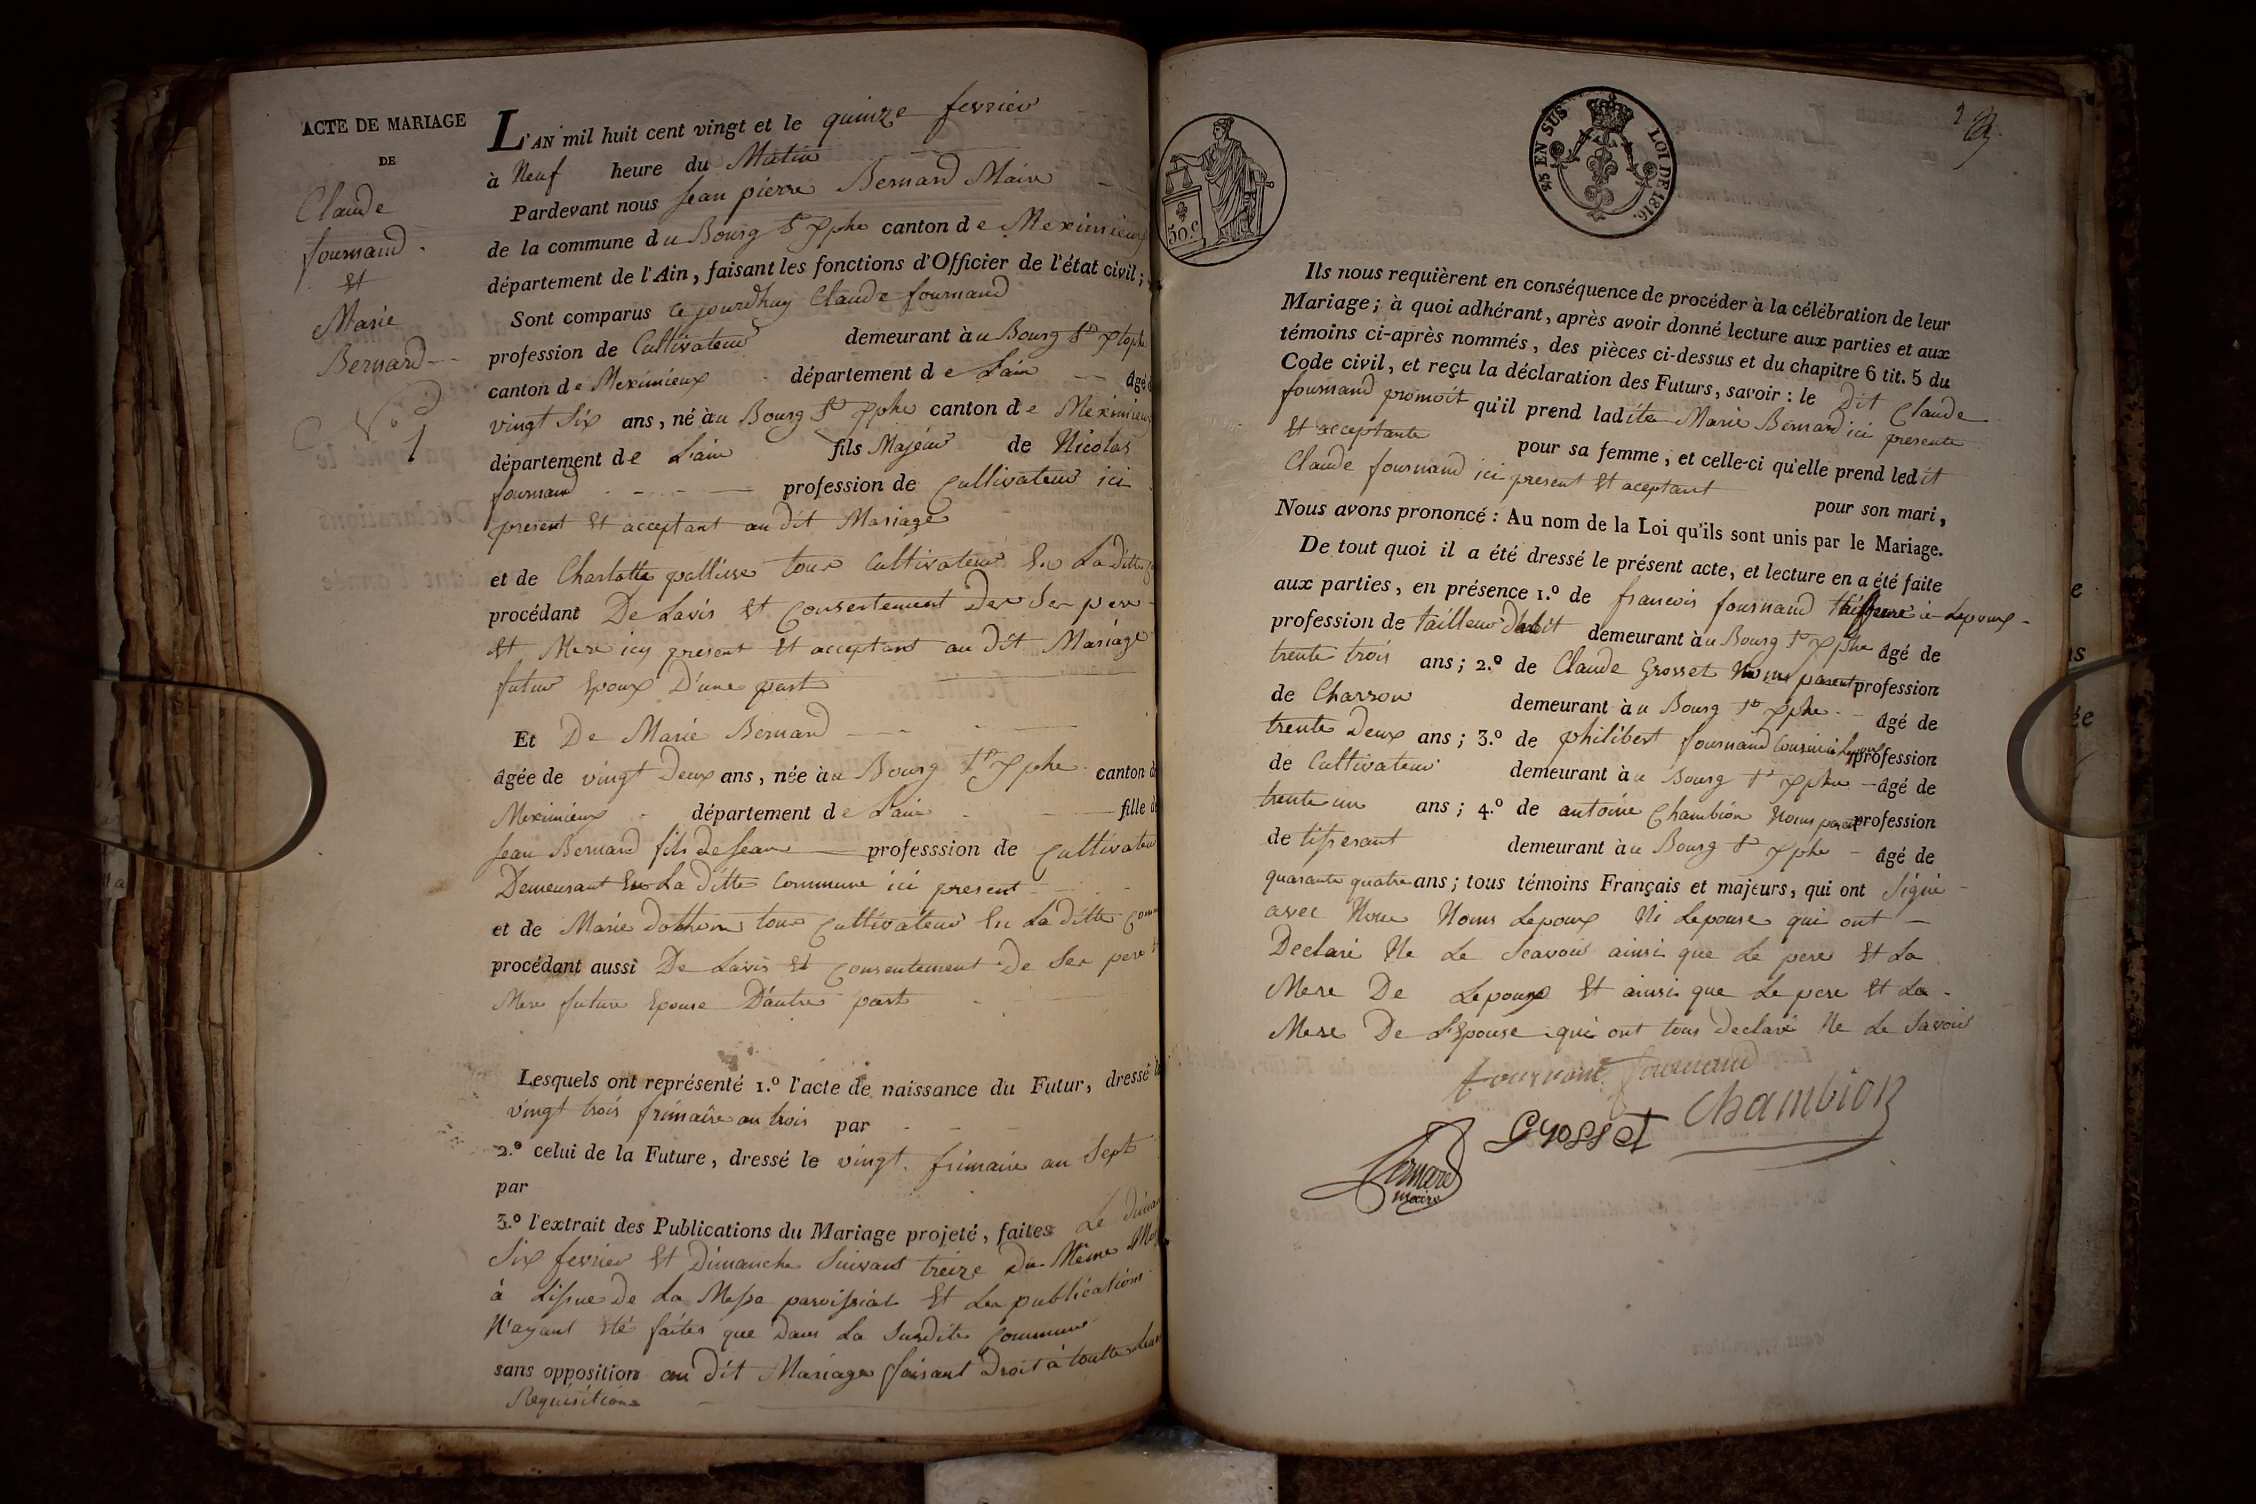 ACTE DE MARIAGE
DE
Claude
fournand
Et
Marie
Bernard
N.º
1
L'AN mil huit cent vingt et le quinze fevrier
à Neuf heure du Matin
Pardevant nous Jean pierre Bernard Maire
de la commune du Bourg St Xphe canton de Meximieux
département de l'Ain, faisant les fonctions d'Officier de l'état civil;
Sont comparus ce jourdhuy Claude fournand
profession de Cultivateur demeurant àu Bourg St Xtophe
canton de Meximieux département de Lain âgé
vingt Six ans, né àu Bourg St Xphe canton de Meximieux
département de Lain fils Majeur de Nicolas
fournand profession de Cultivateur ici
present Et acceptant au dit Mariage
et de Charlotte tous Cultivateur En La ditte
procédant De Lavis Et Consentement Des Ses pere
Et Mere icy present Et acceptant au dit Mariage
futur Epoux D'une part
Et De Marie Bernard
âgée de vingt Deux ans, née àu Bourg St Xphe canton de
Meximieux département de Lain fille de
Jean Bernard fils de Jean professsion de Cultivateur
Demeurant En La ditte Commune ici present
et de Marie tous Cultivateur En La ditte
procédant aussi De Lavis Et Consentement De Ses pere
Mere future Epouse D'autre part
Lesquels ont représenté 1.º l'acte de naissance du Futur, dressé le
vingt trois frimaire an trois par
2.º celui de la Future, dressé le vingt frimaire an Sept
par
3.º l'extrait des Publications du Mariage projeté, faites Le
Six fevrier Et Dimanche Suivant treize du Même
à Lissue De La Messe paroissial Et Les publications
N'ayant Eté faites que dans La Susdite Commune
sans opposition au dit Mariage faisant Droit à toutte
Requisitions
50.c
25 EN SUS
LOI DE 1816.
Ils nous requièrent en conséquence de procéder à la célébration de leur
Mariage; à quoi adhérant, après avoir donné lecture aux parties et aux
témoins ci-après nommés, des pièces ci-dessus et du chapitre 6 tit. 5 du
Code civil, et reçu la déclaration des Futurs, savoir: le Dit Claude
fournand promoit qu'il prend ladite Marie Bernard ici presente
Et acceptante pour sa femme, et celle-ci qu'elle prend ledit
Claude fournand ici present Et aceptant pour son mari,
Nous avons prononcé: Au nom de la Loi qu'ils sont unis par le Mariage.
De tout quoi il a été dressé le présent acte, et lecture en a été faite
aux parties, en présence 1.º de francois fournand à Lepoux
profession de tailleur D'abit demeurant àu Bourg St Xphe âgé de
trente trois ans; 2.º de Claude Grosset Nom parent profession
de Charron demeurant àu Bourg St Xphe âgé de
trente Deux ans; 3.º de philibert fournand Cousin à Lepoux profession
de Cultivateur demeurant àu Bourg St Xphe âgé de
trente un ans; 4.º de antoine Chambion Nom parent profession
de tisserant demeurant àu Bourg St Xphe âgé de
quarante quatre ans; tous témoins Français et majeurs, qui ont Signé
avec Nous Nom Lepoux Ni Lepouse qui ont
Declaré Ne Le Scavoir ainsi que Le pere Et La
Mere De Lepoux Et ainsi que Le pere Et La
Mere De L'Epouse qui ont tous declaré Ne Le Savoir
fournand fournand
Grosset Chambion
Bernard
maire